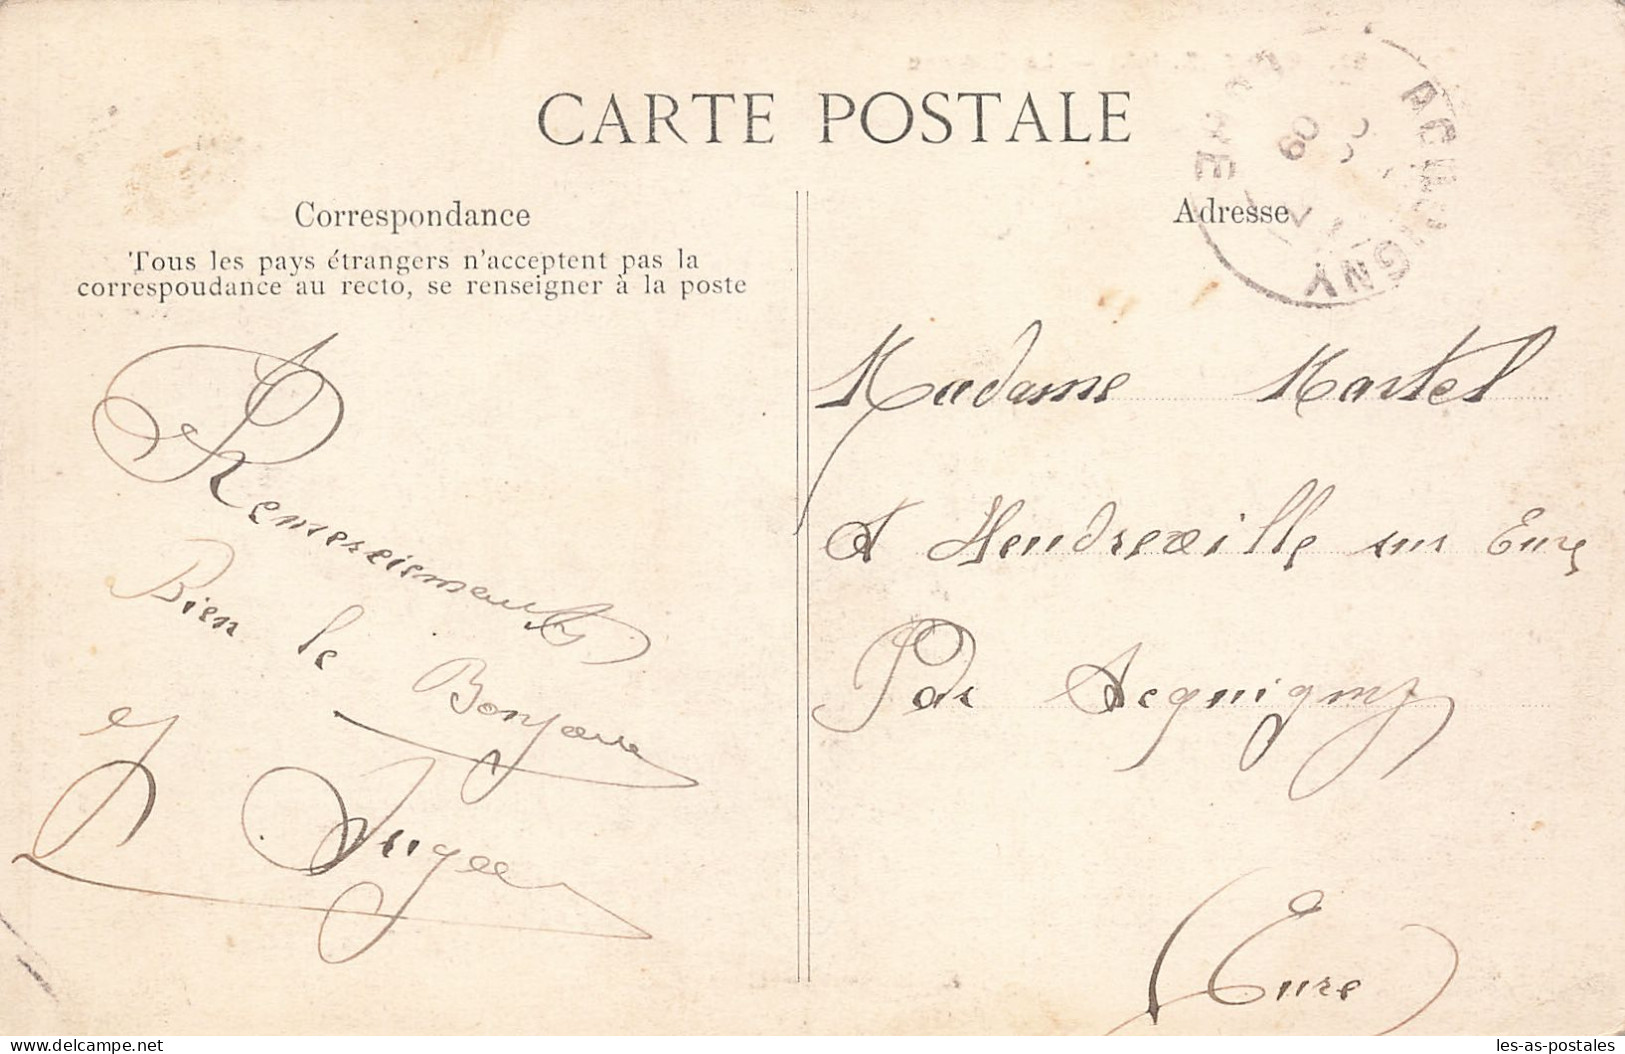 CARTE POSTALE
Correspondance
Tous les pays étrangers n'acceptent pas la
correspoudance au recto, se renseigner à la poste
Remerciements
Bien le Bonjour
Adresse
ACQUIGNY
EURE
09
Madame Martel
A Heudreville sur Eure
Par Acquigny
Eure
delcampe.net
les-as-postales